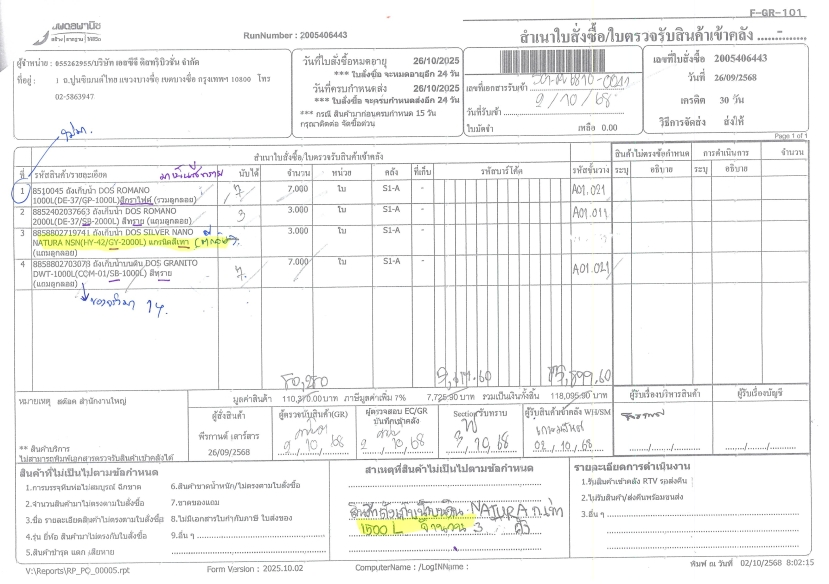 F-GR-101
เพดอพานิช
RunNumber : 2005406443
สำเนาใบสั่งซื้อ/ใบตรวจรับสินค้าเข้าคลัง
ผู้จำหน่าย : 055262955/บริษัท เอสซีจี ดิสทริบิวชั่น จำกัด
ที่อยู่ : 1 ถ.ปูนซิเมนต์ไทย แขวงบางซื่อ เขตบางซื่อ กรุงเทพฯ 10800 โทร
02-5863947
วันที่ใบสั่งซื้อหมดอายุ 26/10/2025
*** ใบสั่งซื้อ จะหมดอายุอีก 24 วัน
วันที่ครบกำหนดส่ง 26/10/2025
*** ใบสั่งซื้อ จะครบกำหนดส่งอีก 24 วัน
*** กรณี สินค้ามาก่อนครบกำหนด 15 วัน
กรุณาติดต่อ จัดซื้อด่วน
เลขที่เอกสารรับเข้า
วันที่รับเข้า 2/10/68
ใบมัดจำ เหลือ 0.00
เลขที่ใบสั่งซื้อ 2005406443
วันที่ 26/09/2568
เครดิต 30 วัน
วิธีการจัดส่ง ส่งให้
Page 1 of 1
สำเนาใบสั่งซื้อ/ใบตรวจรับสินค้าเข้าคลัง
สินค้าไม่ตรงข้อกำหนด การดำเนินการ จำนวน
ที่ รหัสสินค้า/รายละเอียด นับได้ จำนวน หน่วย คลัง ที่เก็บ รหัสบาร์โค้ด รหัสชั้นวาง ระบุ อธิบาย ระบุ อธิบาย
1 8510045 ถังเก็บน้ำ DOS ROMANO 7 7.000 ใบ S1-A - A01.021
1000L(DE-37/GP-1000L)สีกราไฟต์ (รวมลูกลอย)
2 8852402037663 ถังเก็บน้ำ DOS ROMANO 3 3.000 ใบ S1-A - A01.011
2000L(DE-37/SB-2000L) สีทราย (แถมลูกลอย)
3 8858802719741 ถังเก็บน้ำ DOS SILVER NANO 3.000 ใบ S1-A -
NATURA NSN(HY-42/GY-2000L) แกรนิตสีเทา
(แถมลูกลอย)
4 8858802703078 ถังเก็บน้ำบนดิน DOS GRANITO 7 7.000 ใบ S1-A - A01.021
DWT-1000L(COM-01/SB-1000L) สีทราย
(แถมลูกลอย)
14
หมายเหตุ สต๊อค สำนักงานใหญ่
มูลค่าสินค้า 110,370.00บาท ภาษีมูลค่าเพิ่ม 7% 7,725.90บาท รวมเป็นเงินทั้งสิ้น 118,095.90บาท
ผู้รับเรื่องบริหารสินค้า ผู้รับเรื่องบัญชี
ผู้สั่งสินค้า ผู้ตรวจนับสินค้า(GR) ผู้ตรวจสอบ EC/GR Sectionรับทราบ ผู้รับสินค้าเข้าคลัง WH/SM
บันทึกเข้าคลัง
พีรกานต์ เสาร์สาร
26/09/2568 2/10/68 2/10/68 3/10/68 02/10/68
** สินค้าบริการ
ไม่สามารถพิมพ์เอกสารตรวจรับสินค้าเข้าคลังได้
สินค้าที่ไม่เป็นไปตามข้อกำหนด
1.การบรรจุหีบห่อไม่สมบูรณ์ ฉีกขาด
2.จำนวนสินค้ามาไม่ตรงตามใบสั่งซื้อ
3.ชื่อ รายละเอียดสินค้าไม่ตรงตามใบสั่งซื้อ
4.รุ่น ยี่ห้อ สินค้ามาไม่ตรงกับใบสั่งซื้อ
5.สินค้าชำรุด แตก เสียหาย
6.สินค้าขาดน้ำหนัก/ไม่ตรงตามใบสั่งซื้อ
7.ขาดของแถม
8.ไม่มีเอกสารใบกำกับภาษี ใบส่งของ
9.อื่น ๆ
สาเหตุที่สินค้าไม่เป็นไปตามข้อกำหนด
NATURA
1500 L จำนวน 3
รายละเอียดการดำเนินงาน
1.รับสินค้าเข้าคลัง RTV รอส่งคืน
2.ไม่รับสินค้า/ส่งคืนพร้อมขนส่ง
3.อื่น ๆ
V:\Reports\RP_PO_00005.rpt Form Version : 2025.10.02 ComputerName : /LogINName : พิมพ์ ณ วันที่ 02/10/2568 8:02:15